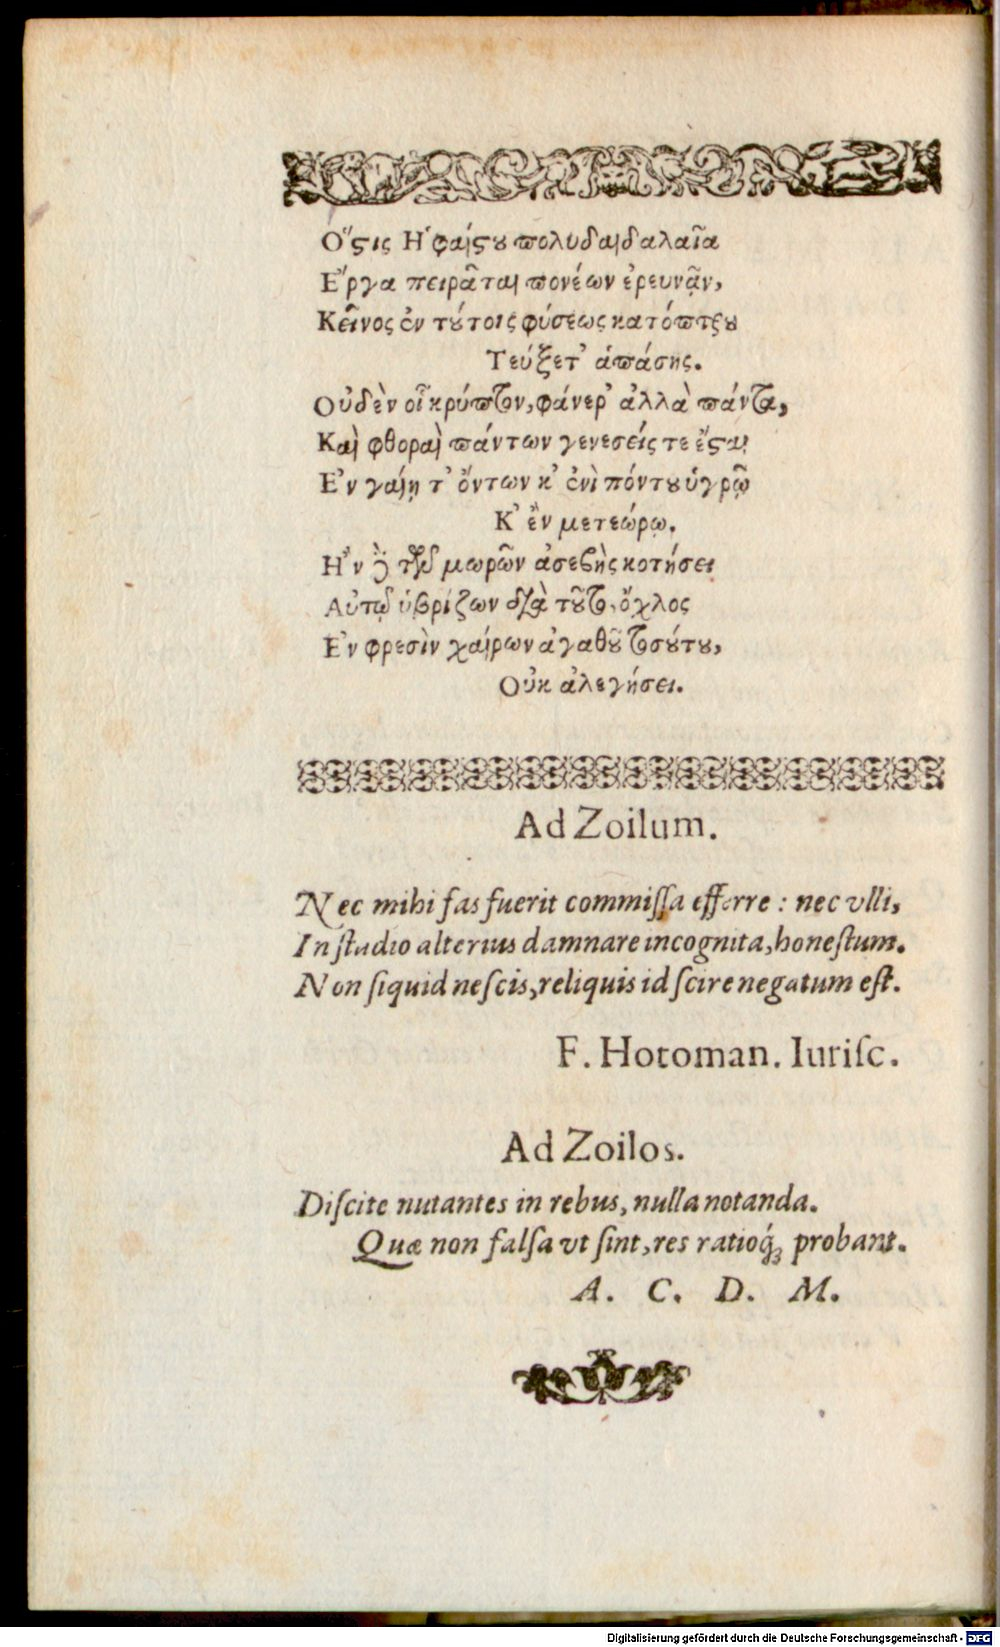 Ὅςις Ἡφαίςȣ πολυδαιδαλαῖα
Ἔργα πειρᾶται πονέων ἐρευνᾷν,
Κεῖνος ἐν τȣ́τοις φύσεως κατόπτρȣ
Τεύξετ’ ἁπάσης.
Οὐδὲν οἷ κρύπτον, φάνερ’ ἀλλὰ πάντα,
Καὶ φθοραὶ πάντων γενεσείς τε ἔςαι
Ἐν γαίῃ τ’ ὄντων κ’ ἐνὶ πόντȣ ὑγρῷ
Κ’ ἓν μετεώρῳ.
Ἢν δὲ τῶν μωρῶν ἀσεβὴς κοτήσει
Αὐτῷ ὑβρίζων διὰ τȣ̃το, ὄχλος
Ἐν φρεσὶν χαίρων ἀγαθȣ̃ τοσȣ́τȣ,
Οὐκ ἀλεγήσει.
Ad Zoilum.
Nec mihi fas fuerit commiſſa efferre : nec vlli,
In ſtudio alterius damnare incognita, honeſtum.
Non ſiquid neſcis, reliquis id ſcire negatum eſt.
F. Hotoman. Iuriſc.
Ad Zoilos.
Diſcite nutantes in rebus, nulla notanda.
Quæ non falſa vt ſint, res ratioq́; probant.
A. C. D. M.
Digitalisierung gefördert durch die Deutsche Forschungsgemeinschaft - DFG